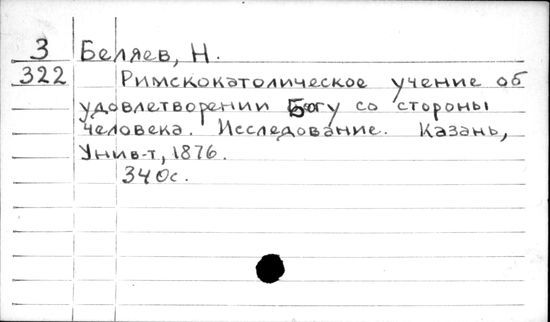 З Беляев, Н.
322 Римскокатолическое учение об
удовлетворении Богу со стороны
человека. Исследование. Казань,
Унив-т, 1876.
340с.